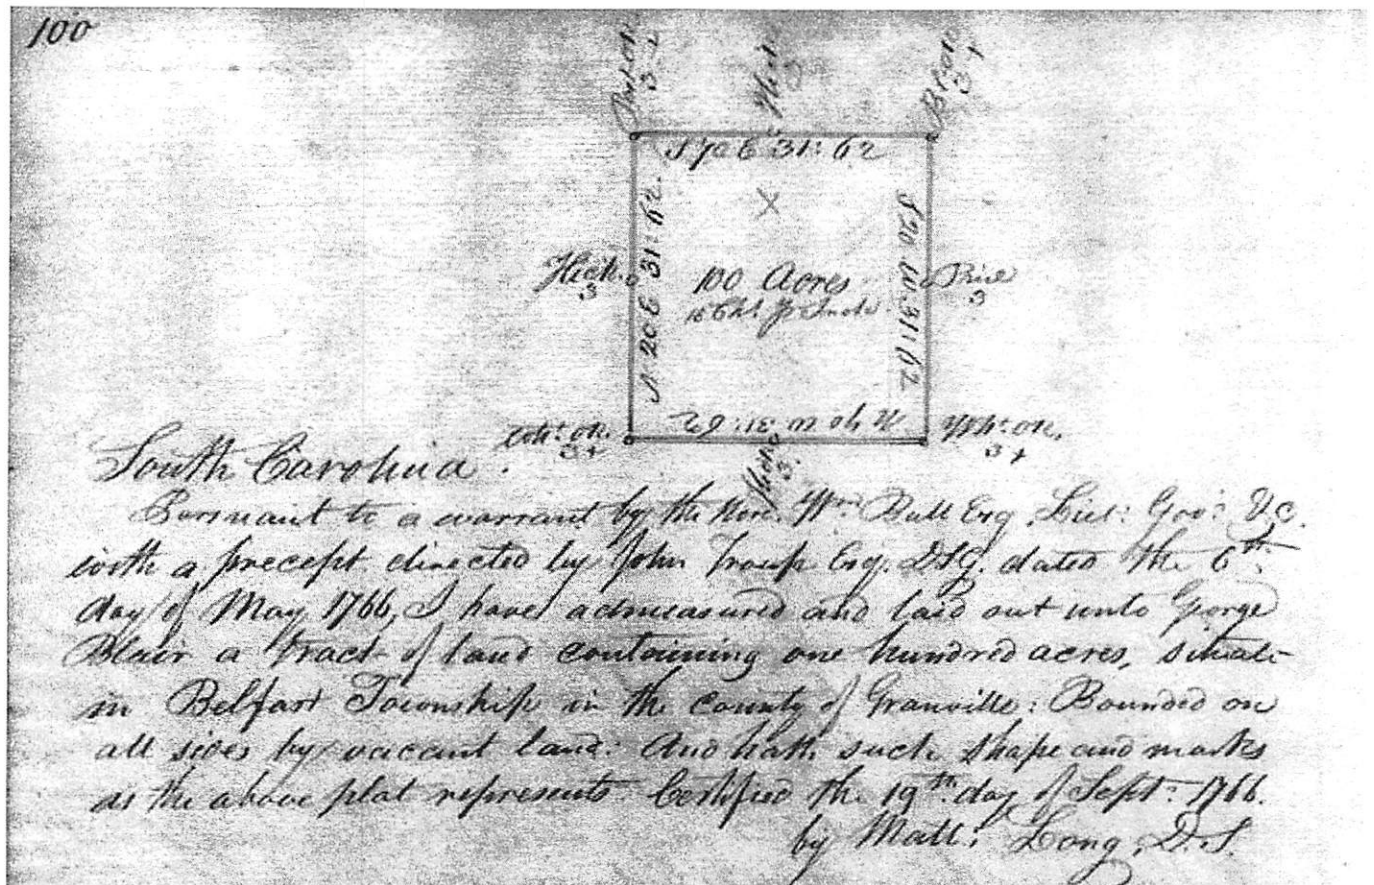 100
3
Hick
3
Bl: ok
3 +
S 70 E 31:62
N 20 E 31:62
S 20 W 31:62
Hick.
3
100 Acres
3
N 70 W 31:62
Wh: ok.
3 +
Wh: ok.
3 +
Hick
3
South Carolina.
Pursuant to a warrant by the Hon. Wm Bull Esq. Lieut: Gov: &c.
with a precept directed by John Troup Esq. D.S.G. dated the 6th
day of May 1766, I have admeasured and laid out unto George
Blair a tract of land containing one hundred acres, situate
in Belfast Township in the county of Granville: Bounded on
all sides by vacant land: And hath such shape and marks
as the above plat represents Certified the 19th day of Sept: 1766.
by Matt: Long, D.S.